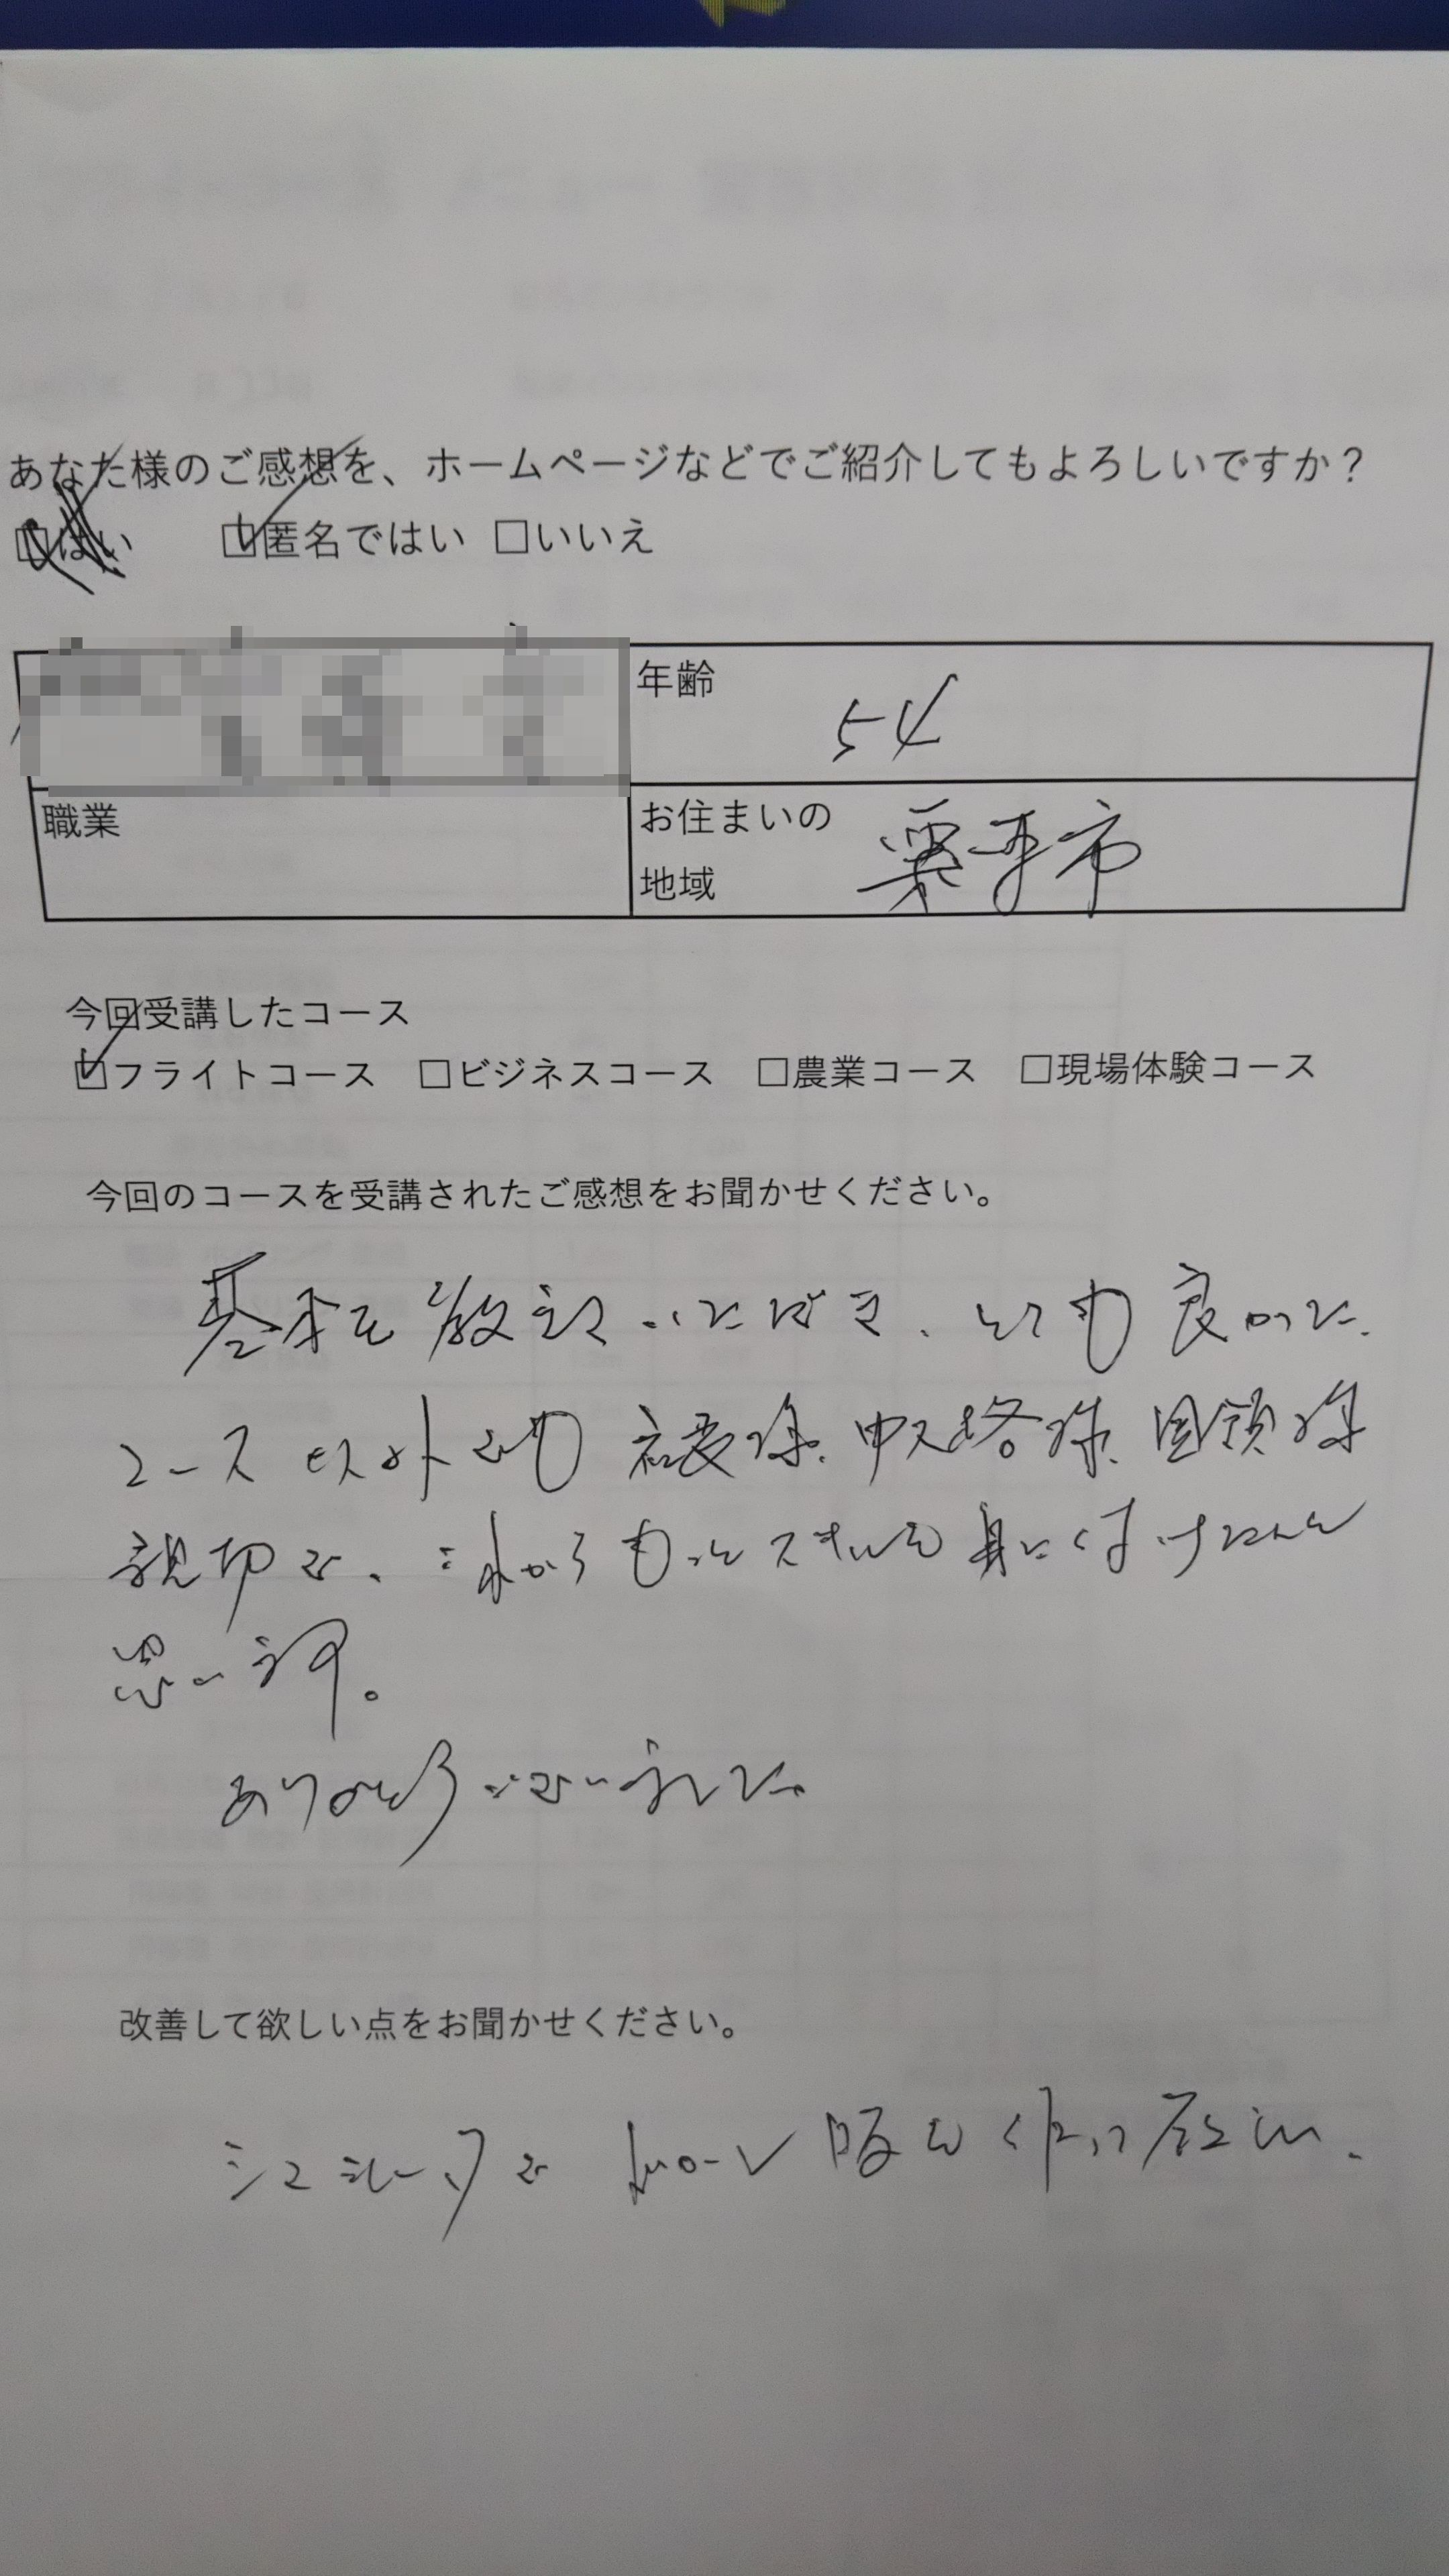 あなた様のご感想を、ホームページなどでご紹介してもよろしいですか？
□はい ☑匿名ではい □いいえ
年齢 54
職業
お住まいの地域 栗東市
今回受講したコース
☑フライトコース □ビジネスコース □農業コース □現場体験コース
今回のコースを受講されたご感想をお聞かせください。
基本を教えていただき、とても良かった。
コース以外でも
親切で、これからもっとスキルを身に付けたいと
思います。
ありがとうございました。
改善して欲しい点をお聞かせください。
シミュレーションで ドローン版を作って下さい。